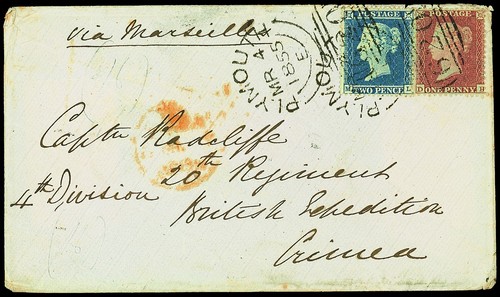 via Marseilles
PLYMOUTH
MR 4
1855
E
PLYMOUTH
POSTAGE
TWO PENCE
POSTAGE
ONE PENNY
Captn Radcliffe
20th Regiment
4th Division
British Expedition
Crimea